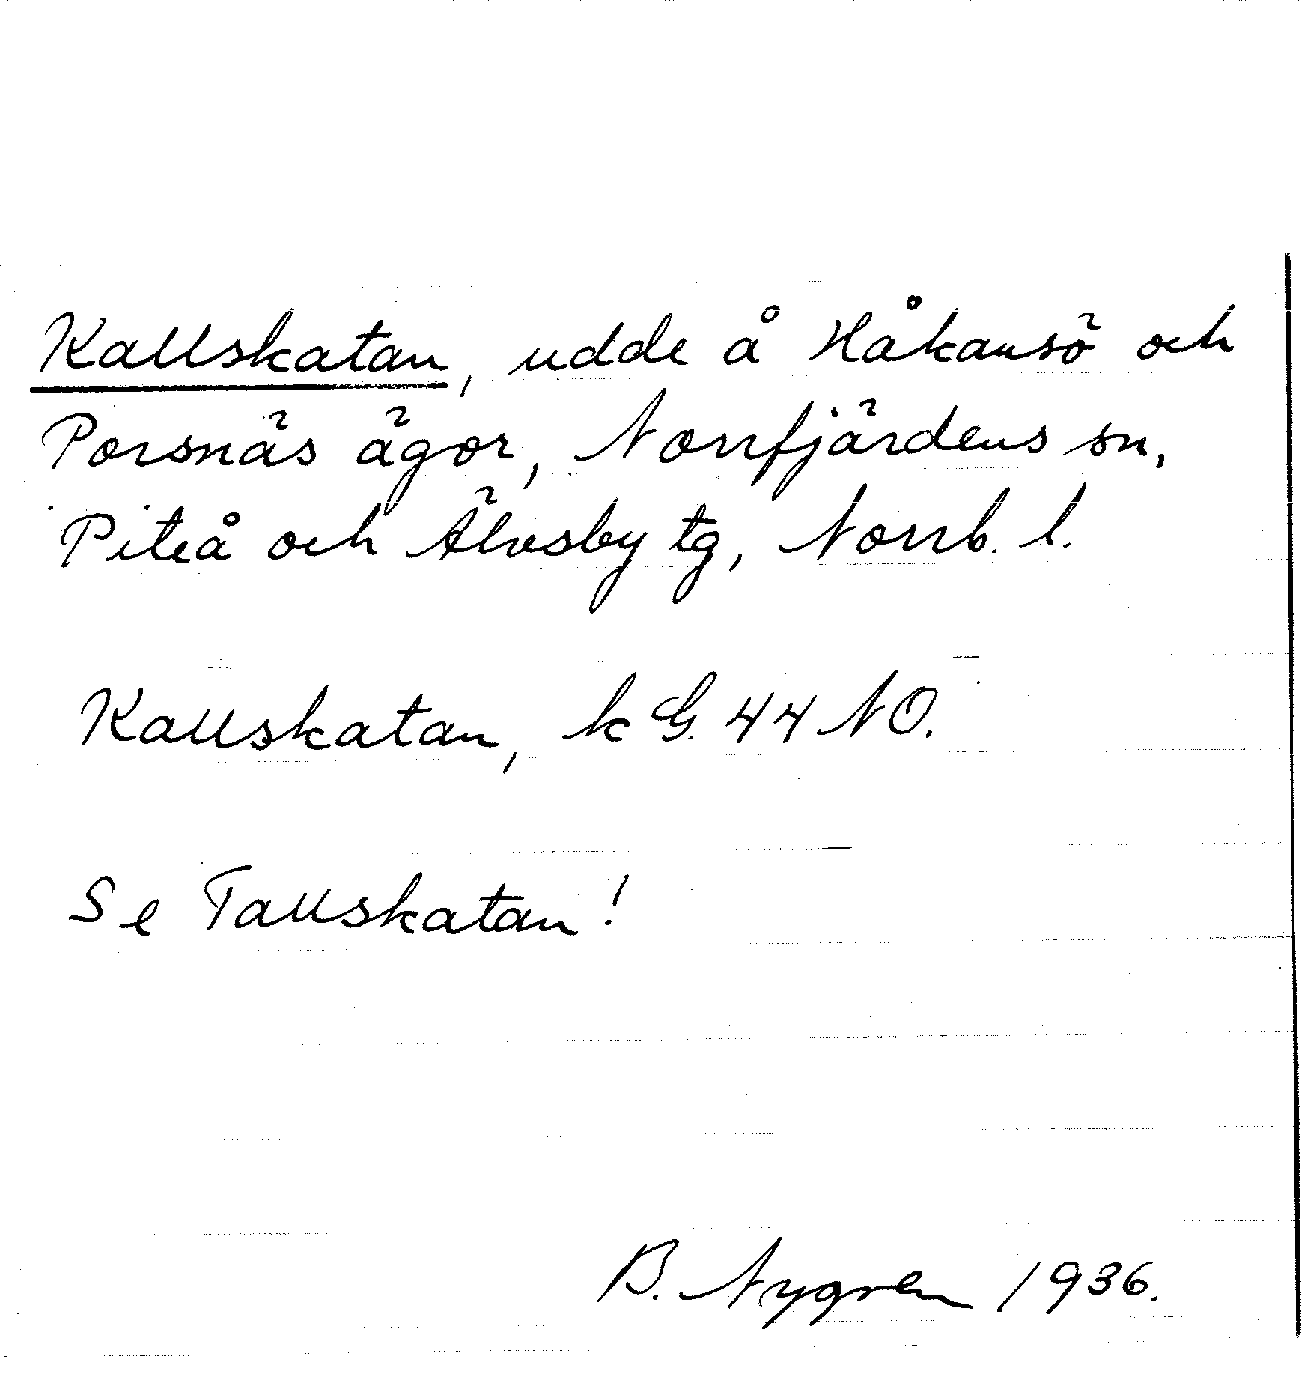 Kallskatan, udde å Håkansö och
Porsnäs ägor, Norrfjärdens sn,
Piteå och Älvsby tg, Norrb. l.
Kallskatan, k G. 44 NO.
Se Tallskatan!
B. Nygren 1936.